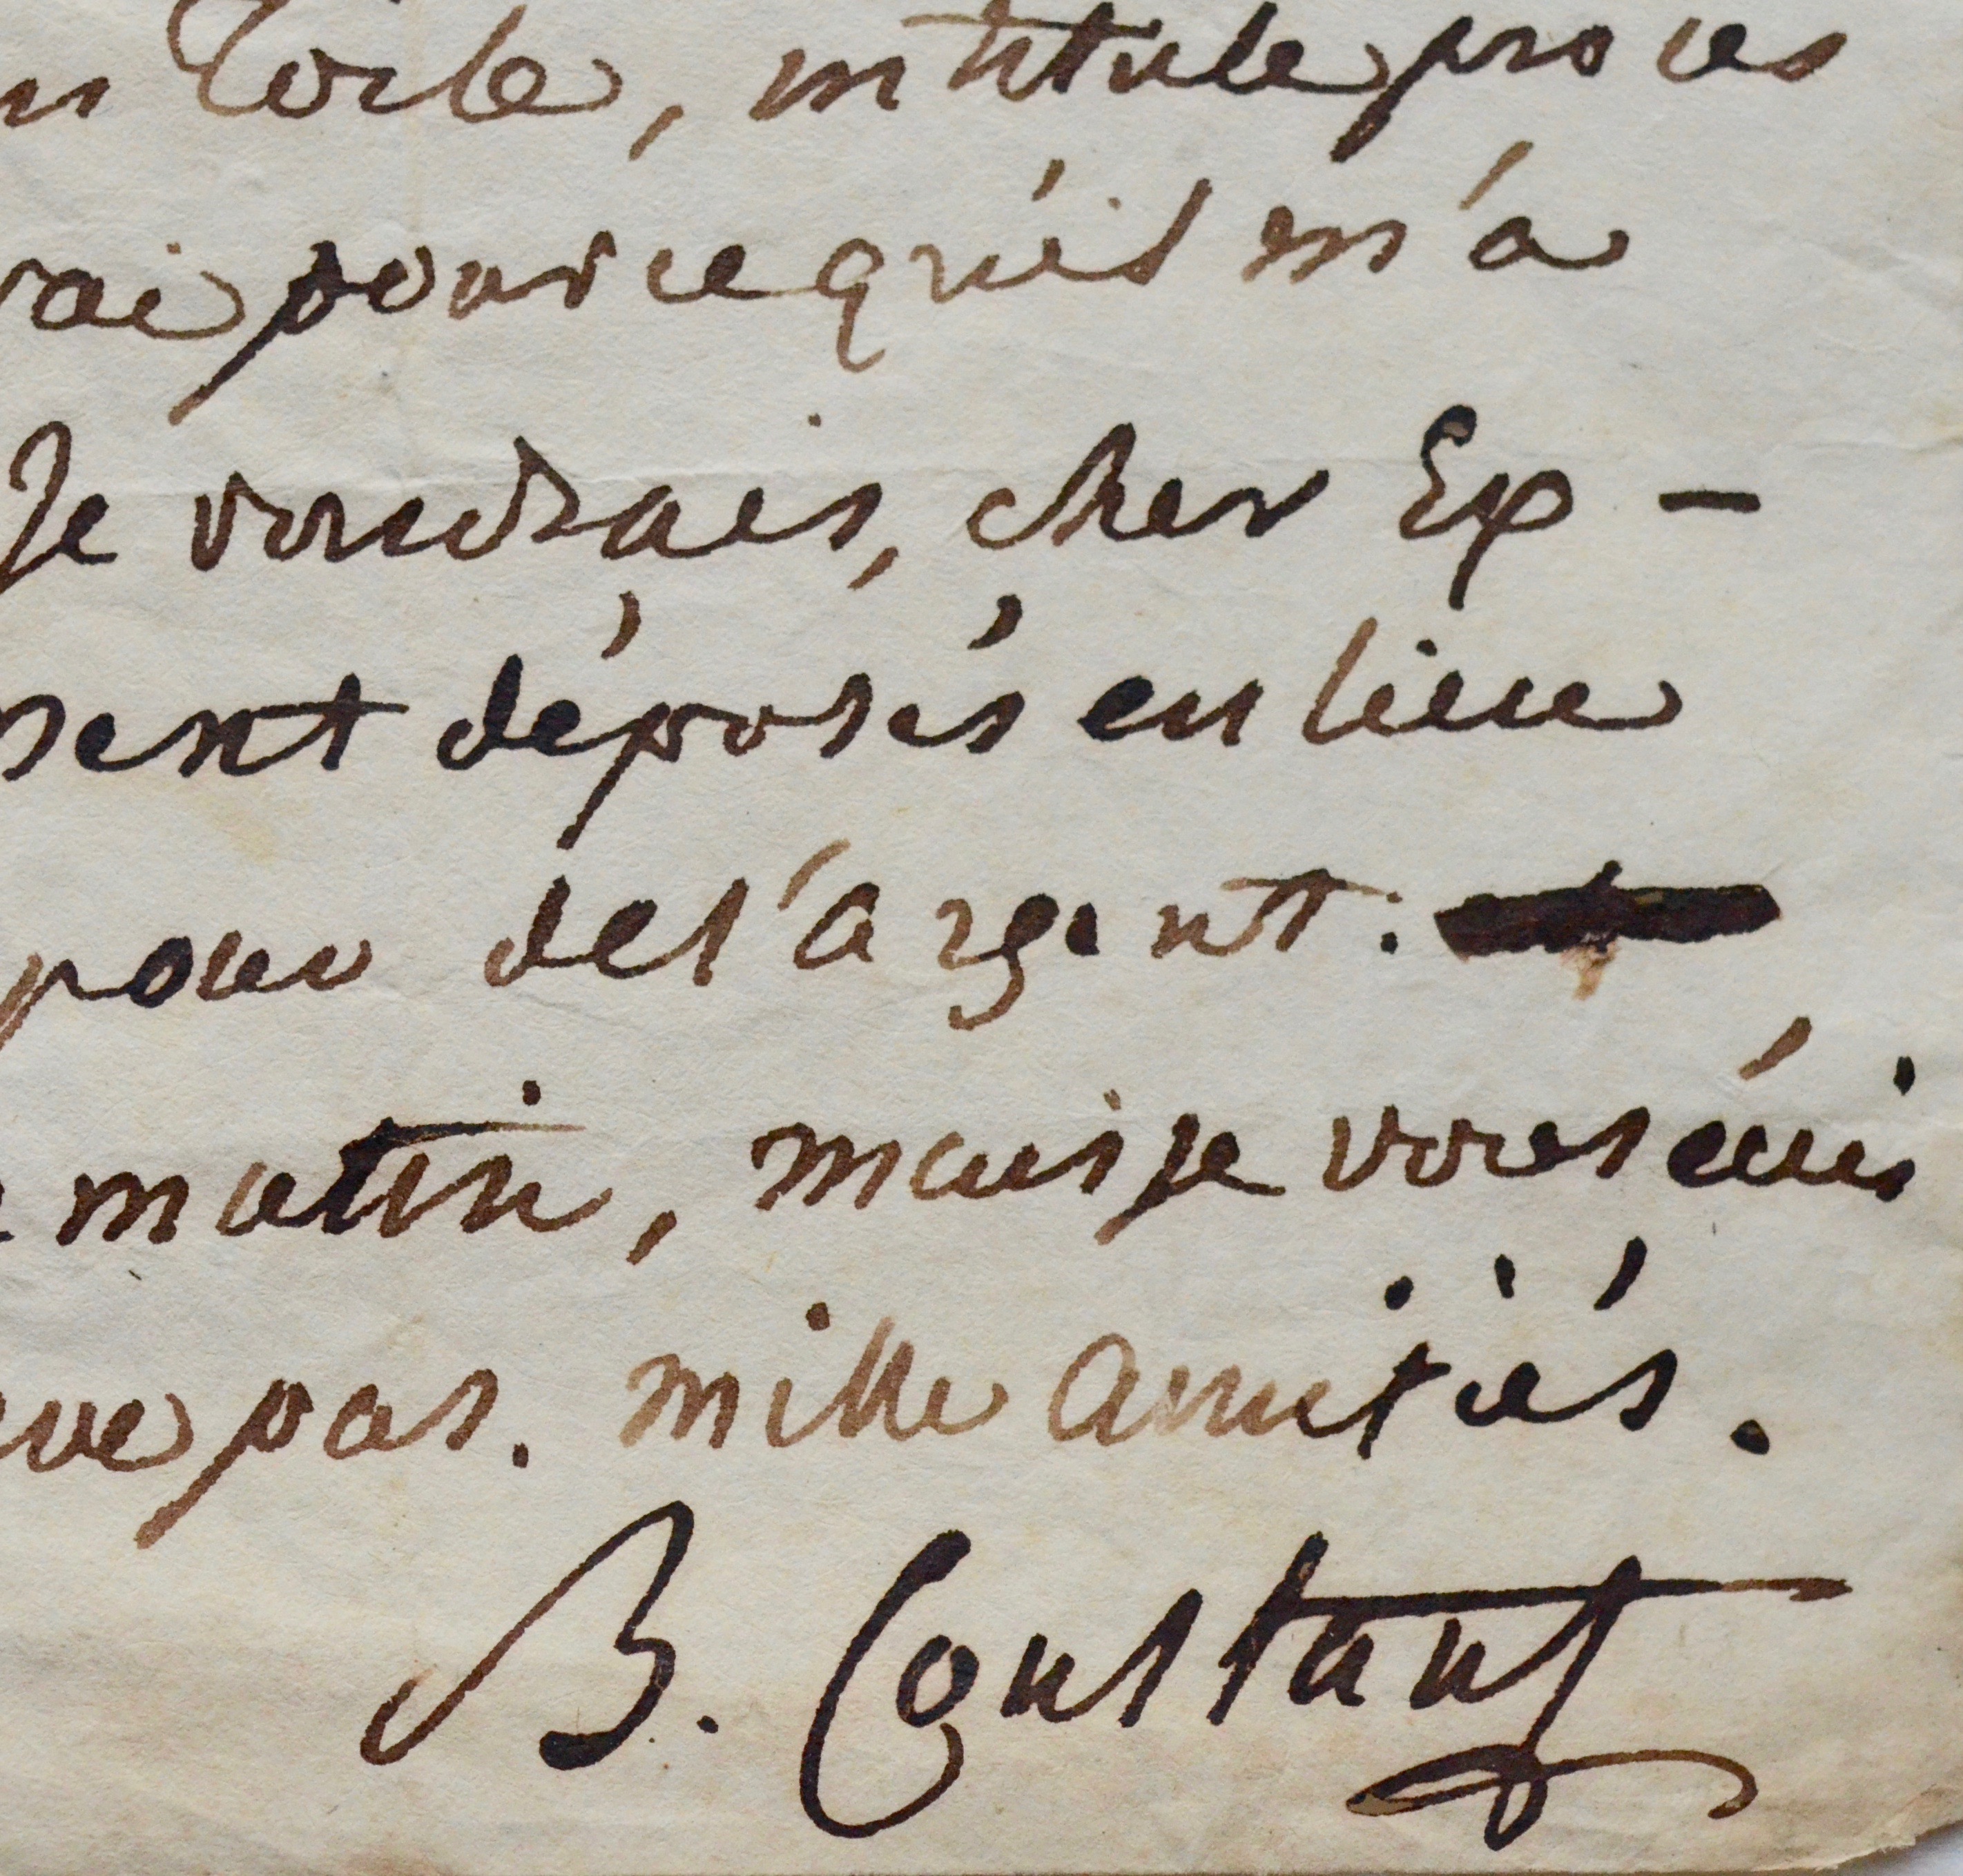 n Toile, intitulé procès
rai pour ce qu'il m'a
Je voudrais, cher Ex-
sent déposés en lieu
pour de l'argent:
matin, mais je vous écris
ve pas. mille amitiés.
B. Constant